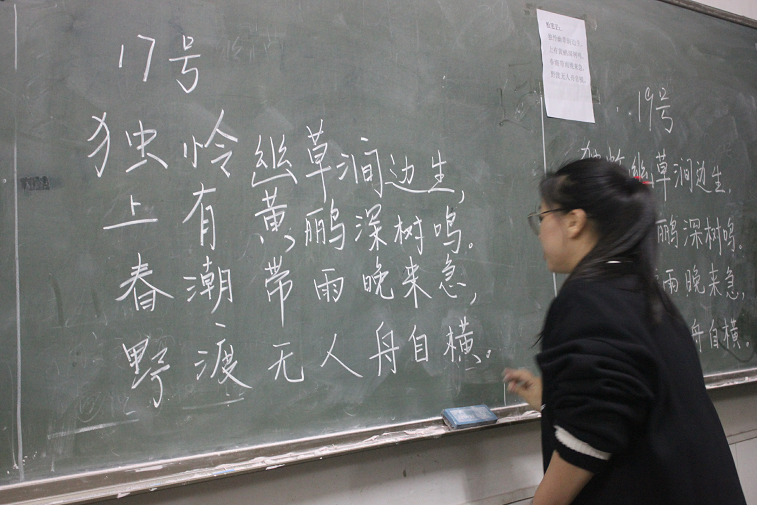 17号
独怜幽草涧边生,
上有黄鹂深树鸣。
春潮带雨晚来急,
野渡无人舟自横。
19号
草涧边生,
鹂深树鸣。
雨晚来急,
舟自横。